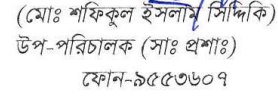 (মোঃ শফিকুল ইসলাম সিদ্দিকি)
উপ-পরিচালক (সাঃ প্রশাঃ)
ফোন-৯৫৫৩৬০৭